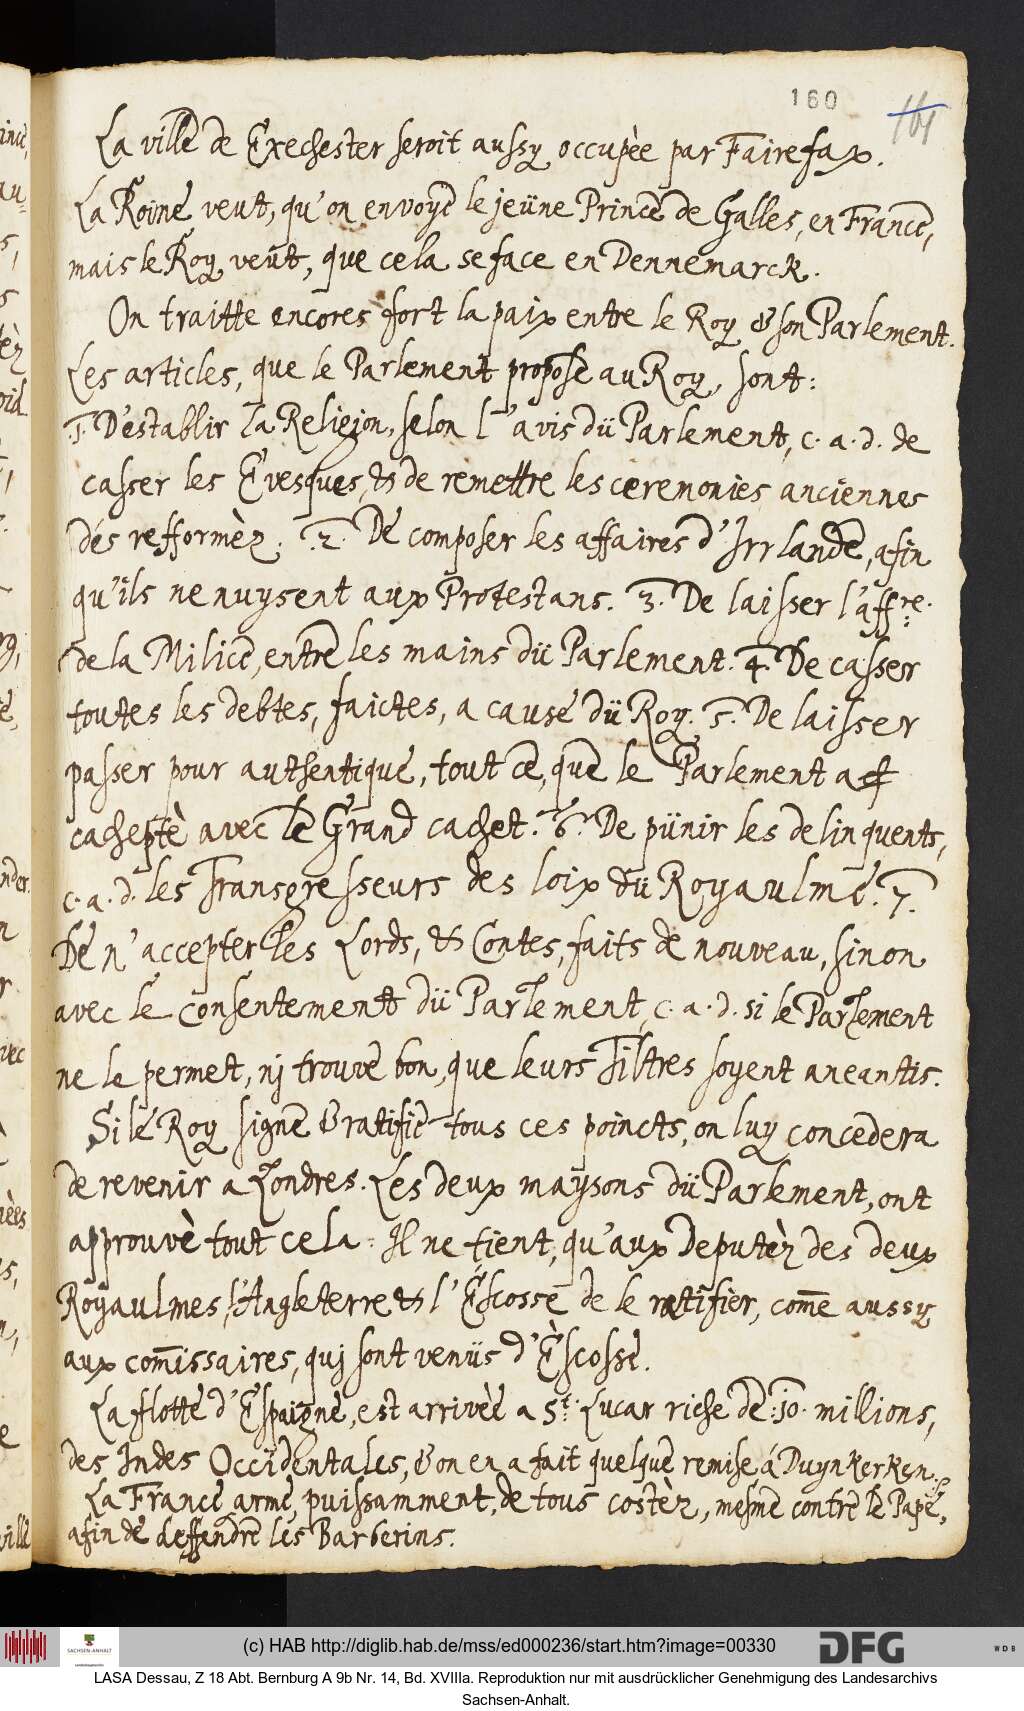 160
161
La ville de Exechester seroit aussy occupèe par Fairefax.
La Roine veut, qu'on envoye le jeüne Prince de Galles, en France,
mais le Roy veut, que cela se face en Dennemarck.
On traitte encores fort la paix entre le Roy & son Parlement.
Les articles, que le Parlement propose au Roy, sont:
.1. D'establir la Religion, selon l'avis dü Parlement, c. a. d. de
casser les Evesques, & de remettre les ceremonies anciennes
des refformèz. .2. De composer les affaires d'Irrlande, afin
qu'ils ne nuysent aux Protestans. 3. De laisser l'affre.
de la Milice, entre les mains dü Parlement. 4. De casser
toutes les debtes, faictes, a cause dü Roy. 5. De laisser
passer pour authentique, tout ce, que le Parlement a
cacheptè avec le Grand cachet. .6. De pünir les delinquents,
c. a. d. les Transgresseurs des loix dü Royaulme. 7.
De n'accepter les Lords, & Contes, faits de nouveau, sinon
avec le consentement dü Parlement, c. a. d. si le Parlement
ne le permet, nj trouve bon, que leurs Tiltres soyent aneantis.
Si le Roy signe & ratifie tous ces poincts, on luy concedera
de revenir a Londres. Les deux maysons dü Parlement, ont
approuvè tout cela. Il ne tient, qu'aux Deputèz des deux
Royaulmes, l'Angleterre & l'Escosse de le ratifier, come aussy
aux comissaires, quj sont venüs d'Escosse.
La flotte d'Espaigne, est arrivèe a St. Lucar riche de .10. millions,
des Indes Occidentales, & on en a fait quelque remise á Duynkerken.
La France arme, puissamment, de tous costèz, mesme contre le Pape,
afin de deffendre les Barberins.
(c) HAB http://diglib.hab.de/mss/ed000236/start.htm?image=00330
SACHSEN-ANHALT
DFG
WDB
LASA Dessau, Z 18 Abt. Bernburg A 9b Nr. 14, Bd. XVIIIa. Reproduktion nur mit ausdrücklicher Genehmigung des Landesarchivs
Sachsen-Anhalt.